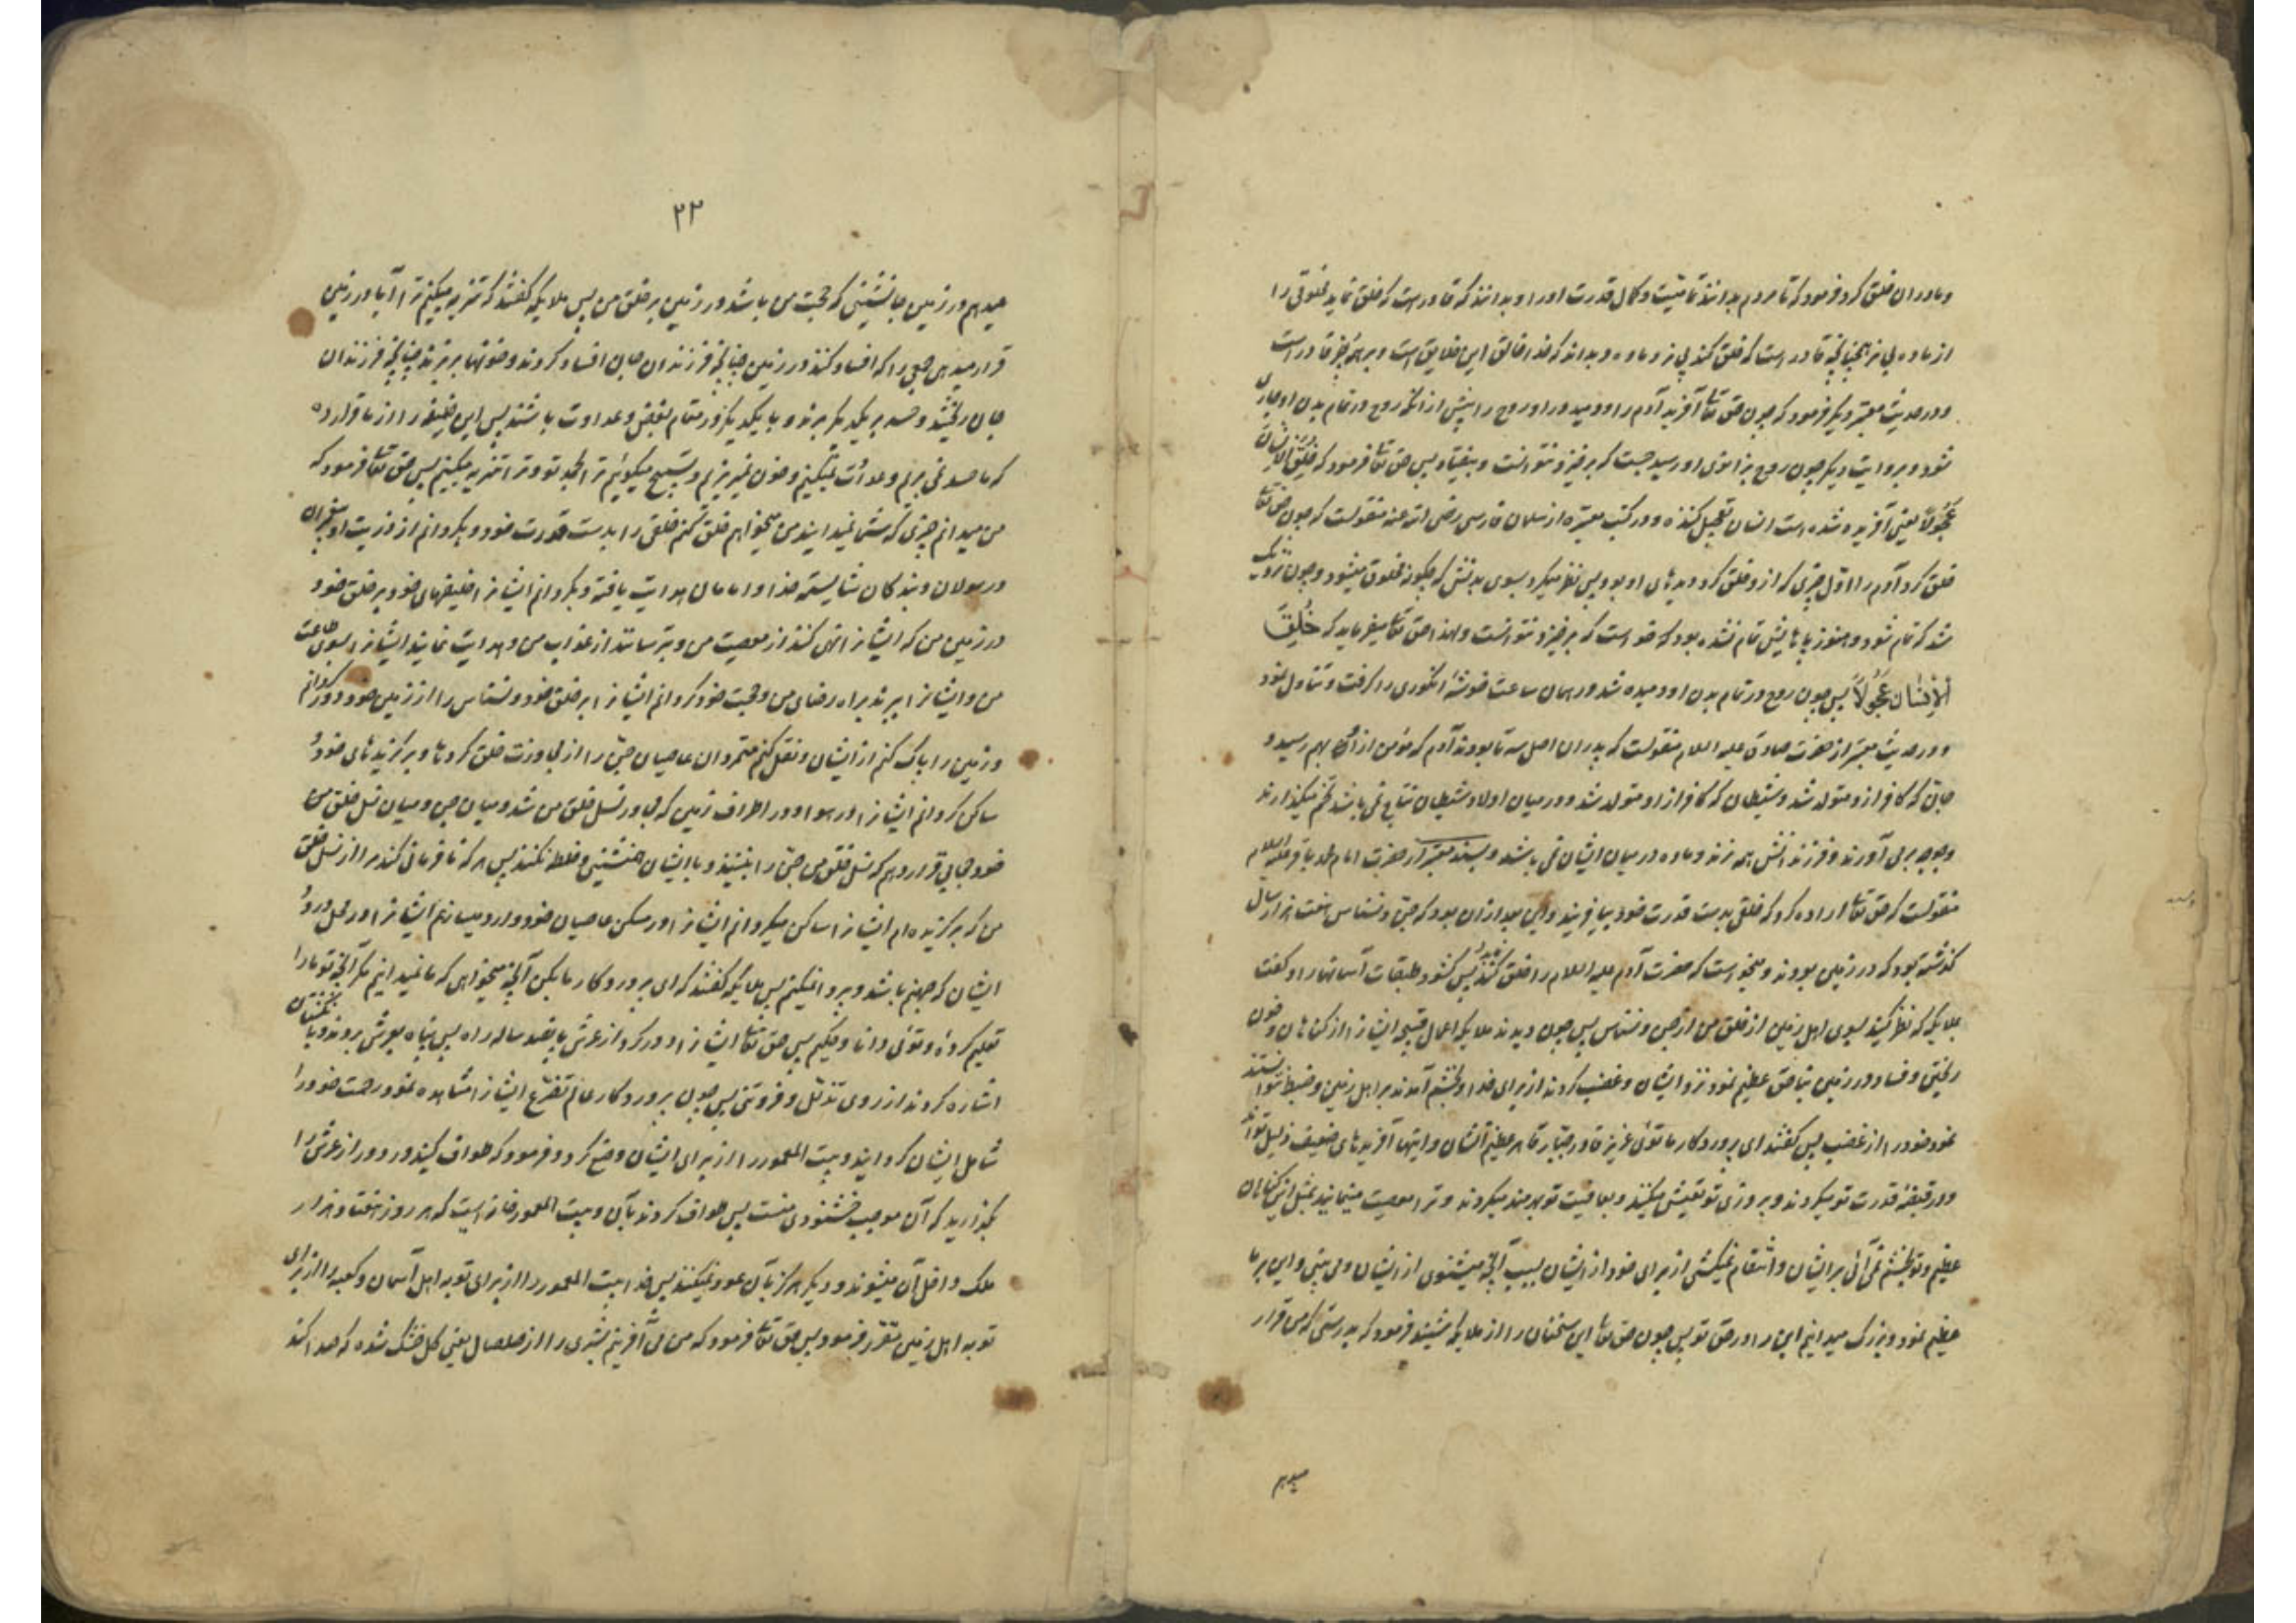 و مادران خلق کرد فرمود که تا مردم بدانند تمامیت و کمال قدرت او را و بدانند که قادر است که خلق نماید مخلوقی را
از ماده بی نر همچنانچه قادر است که خلق کند بی نر و ماده و بداند که خدا خالق این خلایق است و بر همه چیز قادر است
و در حدیث معتبر دیگر فرمود که چون حق تعالی آفرید آدم را و دمید در او روح را پیش از آنکه روح در تمام بدن او جاری
شود و بروایت دیگر چون روح بزانوی او رسید جست که برخیزد نتوانست و بیفتاد پس حق تعالی فرمود که خُلِقَ الاِنْسَانُ
عَجُولاً یعنی آفریده شده است انسان تعجیل کننده و در کتب معتبره از سلمان فارسی رضی الله عنه منقولست که چون حق تعالی
خلق کرد آدم را اول چیزی که ازو خلق کرد دیدهای او بود پس نظر میکرد بسوی بدنش که چگونه مخلوق میشود و چون نزدیک
شد که تمام شود و هنوز پاهایش تمام نشده بود که خواست که برخیزد نتوانست و لهذا حق تعالی میفرماید که خُلِقَ
الاِنْسَانُ عَجُولاً پس چون روح در تمام بدن او دمیده شد در همان ساعت خوشه انگوری را گرفت و تناول نمود
و در حدیث معتبر از حضرت صادق علیه السلام منقولست که پدران اصل سه تا بودند آدم که مومن از او بهم رسید و
جان که کافر ازو متولد شد و شیطان که کافر از او متولد شد و در میان اولاد شیطان نتاج نمی باشد تخم میگذارند
و جوجه بر می آورند و فرزندانش همه نرند و ماده در میان ایشان نمی باشد و بسند معتبر از حضرت امام محمد باقر علیه السلام
منقولست که حق تعالی اراده کرد که خلقی بدست قدرت خود بیافریند و این بعد از آن بود که جن و نسناس هفت هزار سال
گذشته بود که در زمین بودند و میخواست که حضرت آدم علیه السلام را خلق کند پس گشود طبقات آسمانها را و گفت
ملایکه که نظر کنید بسوی اهل زمین از خلق من از جن و نسناس پس چون دیدند ملایکه اعمال قبیحه ایشان را از گناهان و خون
ریختن و فساد در زمین بناحق عظیم نمود نزد ایشان و غضب کردند از برای خدا و بخشم آمدند بر اهل زمین و ضبط نتوانستند
نمود خود را از غضب پس گفتند ای پروردگار ما توئی عزیز قادر جبار قاهر عظیم الشان و اینها آفریدهای ضعیف ذلیل تواند
و در قبضه قدرت تو میگردند و بروزی تو تعیش میکنند و بعافیت تو بهرمند میگردند و ترا معصیت مینمایند بمثل این گناهان
عظیم و تو بخشم نمی آئی بر ایشان و انتقام نمیکشی از برای خود از ایشان بسبب آنچه میشنوی از ایشان و می بینی و این بر ما
عظیم نمود و بزرگ میدانیم این را در حق تو پس چون حق تعالی این سخنان را از ملایکه شنید فرمود که بدرستی که من قرار
میدهم
۲۳
میدهم در زمین جانشینی که حجت من باشد در زمین بر خلق من پس ملایکه گفتند که تنزیه میکنیم ترا آیا در زمین
قرار میدهی جمعی را که افساد کنند در زمین چنانچه فرزندان جان افساد کردند و خونها بریزند چنانچه فرزندان
جان ریختند و حسد بر یکدیگر برند و با یکدیگر در مقام بغض و عداوت باشند پس این خلیفه را از ما قرار ده
که ما حسد نمی بریم و عداوت نمیکنیم و خون نمیریزیم و تسبیح میگوئیم ترا بحمد تو و ترا تنزیه میکنیم پس حق تعالی فرمود که
من میدانم چیزی که شما نمیدانید من میخواهم خلق کنم خلقی را بدست قدرت خود و بگردانم از ذریت او پیغمبران
و رسولان و بندگان شایسته خدا و امامان هدایت یافته و بگردانم ایشان را خلیفهای خود بر خلق خود
در زمین من که ایشان را نهی کنند از معصیت من و بترسانند از عذاب من و هدایت نمایند ایشان را بسوی طاعت
من و ایشان را ببرند براه رضای من و حجت خود گردانم ایشان را بر خلق خود و نسناس را از زمین خود دور گردانم
و زمین را پاک کنم از ایشان و نقل کنم متمردان عاصیان جن را از مجاورت خلق کردها و برگزیدهای خود و
ساکن گردانم ایشان را در هوا و در اطراف زمین که مجاور نسل خلق من نشوند و میان جن و میان نسل خلق من
خود حجابی قرار دهم که نسل خلق من جن را نبینند و با ایشان همنشینی و خلطه نکنند پس هر که نافرمانی کند مرا از نسل خلق
من که برگزیده ام ایشان را ساکن میگردانم ایشان را در مسکن عاصیان خود و وارد میسازم ایشان را در محل ورود
ایشان که جهنم باشد و پروا نمیکنم پس ملایکه گفتند که ای پروردگار ما بکن آنچه میخواهی که ما نمیدانیم مگر آنچه تو ما را
تعلیم کردهٔ و توئی دانا و حکیم پس حق تعالی ایشان را دور کرد از عرش پانصد ساله راه پس پناه بعرش بردند و با انگشتان
اشاره کردند از روی تذلل و فروتنی پس چون پروردگار عالم تضرع ایشان را مشاهده نمود رحمت خود را
شامل ایشان گردانید و بیت المعمور را از برای ایشان وضع کرد و فرمود که طواف کنید در دور او عرش را
بگذارید که آن موجب خشنودی منست پس طواف کردند بآن و بیت المعمور خانه ایست که هر روز هفتاد هزار
ملک داخل آن میشوند و دیگر هرگز بآن عود نمیکنند پس خدا بیت المعمور را از برای توبه اهل آسمان و کعبه را از برای
توبه اهل زمین مقرر فرمود پس حق تعالی فرمود که من می آفرینم بشری را از صلصال یعنی گل خشک شده که صدا کند